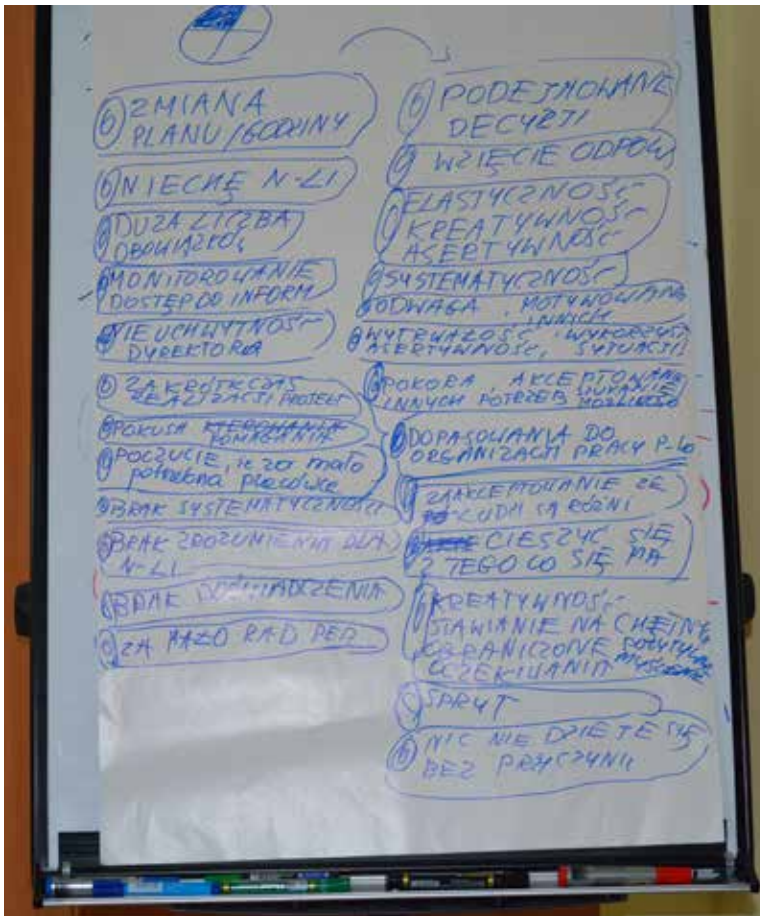 ZMIANA
PLANU/GODZINY
NIECHĘ N-LI
DUŻA LICZBA
OBOWIĄZKÓW
MONITOROWANIE
DOSTĘP DO INFORM
NIEUCHWYTNOŚĆ
DYREKTORA
ZA KRÓTK CZAS
REALIZACJI PROJEKT
POKUSA KIEROWANIA
POMAGANIA
POCZUCIE, że za mało
potrzebna placówce
BRAK SYSTEMATYCZNOŚCI
BRAK ZROZUMIENIA DLA
N-LI
BRAK DOŚWIADCZENIA
ZA MAŁO RAD PED
PODEJMOWANIE
DECYZJI
WZIĘCIE ODPOW
ELASTYCZNOŚĆ
KREATYWNOŚĆ
ASERTYWNOŚĆ
SYSTEMATYCZNOŚĆ
ODWAGA, MOTYWOWANIE
INNYCH
WYTRWAŁOŚĆ, WYKORZYST
ASERTYWNOŚĆ, SYTUACJI
POKORA, AKCEPTOWANIE
INNYCH POTRZEB
DOPASOWANIA DO
ORGANIZACJI PRACY P-LO
ZAAKCEPTOWANIE ŻE
LUDZIE SĄ RÓŻNI
CIESZYĆ SIĘ
Z TEGO CO SIĘ MA
KREATYWNOŚĆ
STAWIANIE NA CHĘTNYCH
OGRANICZONE POZYTYWNE
OCZEKIWANIA MYŚLENIE
SPRYT
NIC NIE DZIEJE SIĘ
BEZ PRZYCZYNY